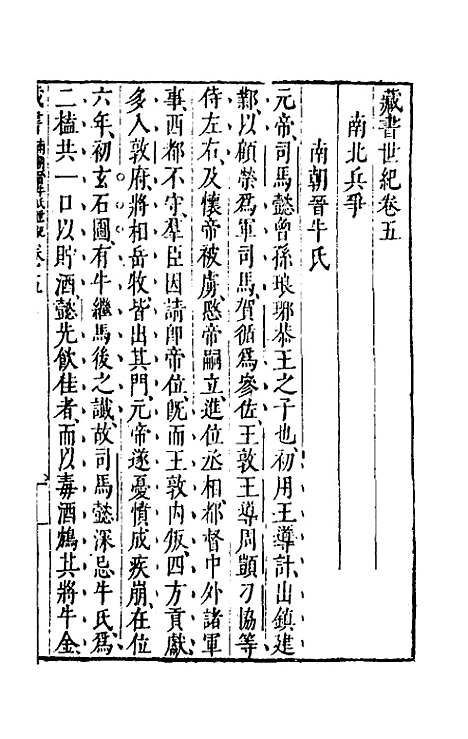 藏書世紀卷五
南北兵爭
南朝晉牛氏
元帝司馬懿曾孫琅琊恭王之子也初用王導計出鎮建
鄴以顧榮爲軍司馬賀循爲參佐王敦王導周顗刁協等
侍左右及懷帝被虜愍帝嗣立進位丞相都督中外諸軍
事西都不守羣臣因請卽帝位旣而王敦内叛四方貢獻
多入敦府將相岳牧皆出其門元帝遂憂憤成疾崩在位
六年初玄石圖有牛繼馬後之讖故司馬懿深忌牛氏爲
二榼共一口以貯酒懿先飲佳者而以毒酒鴆其將牛金